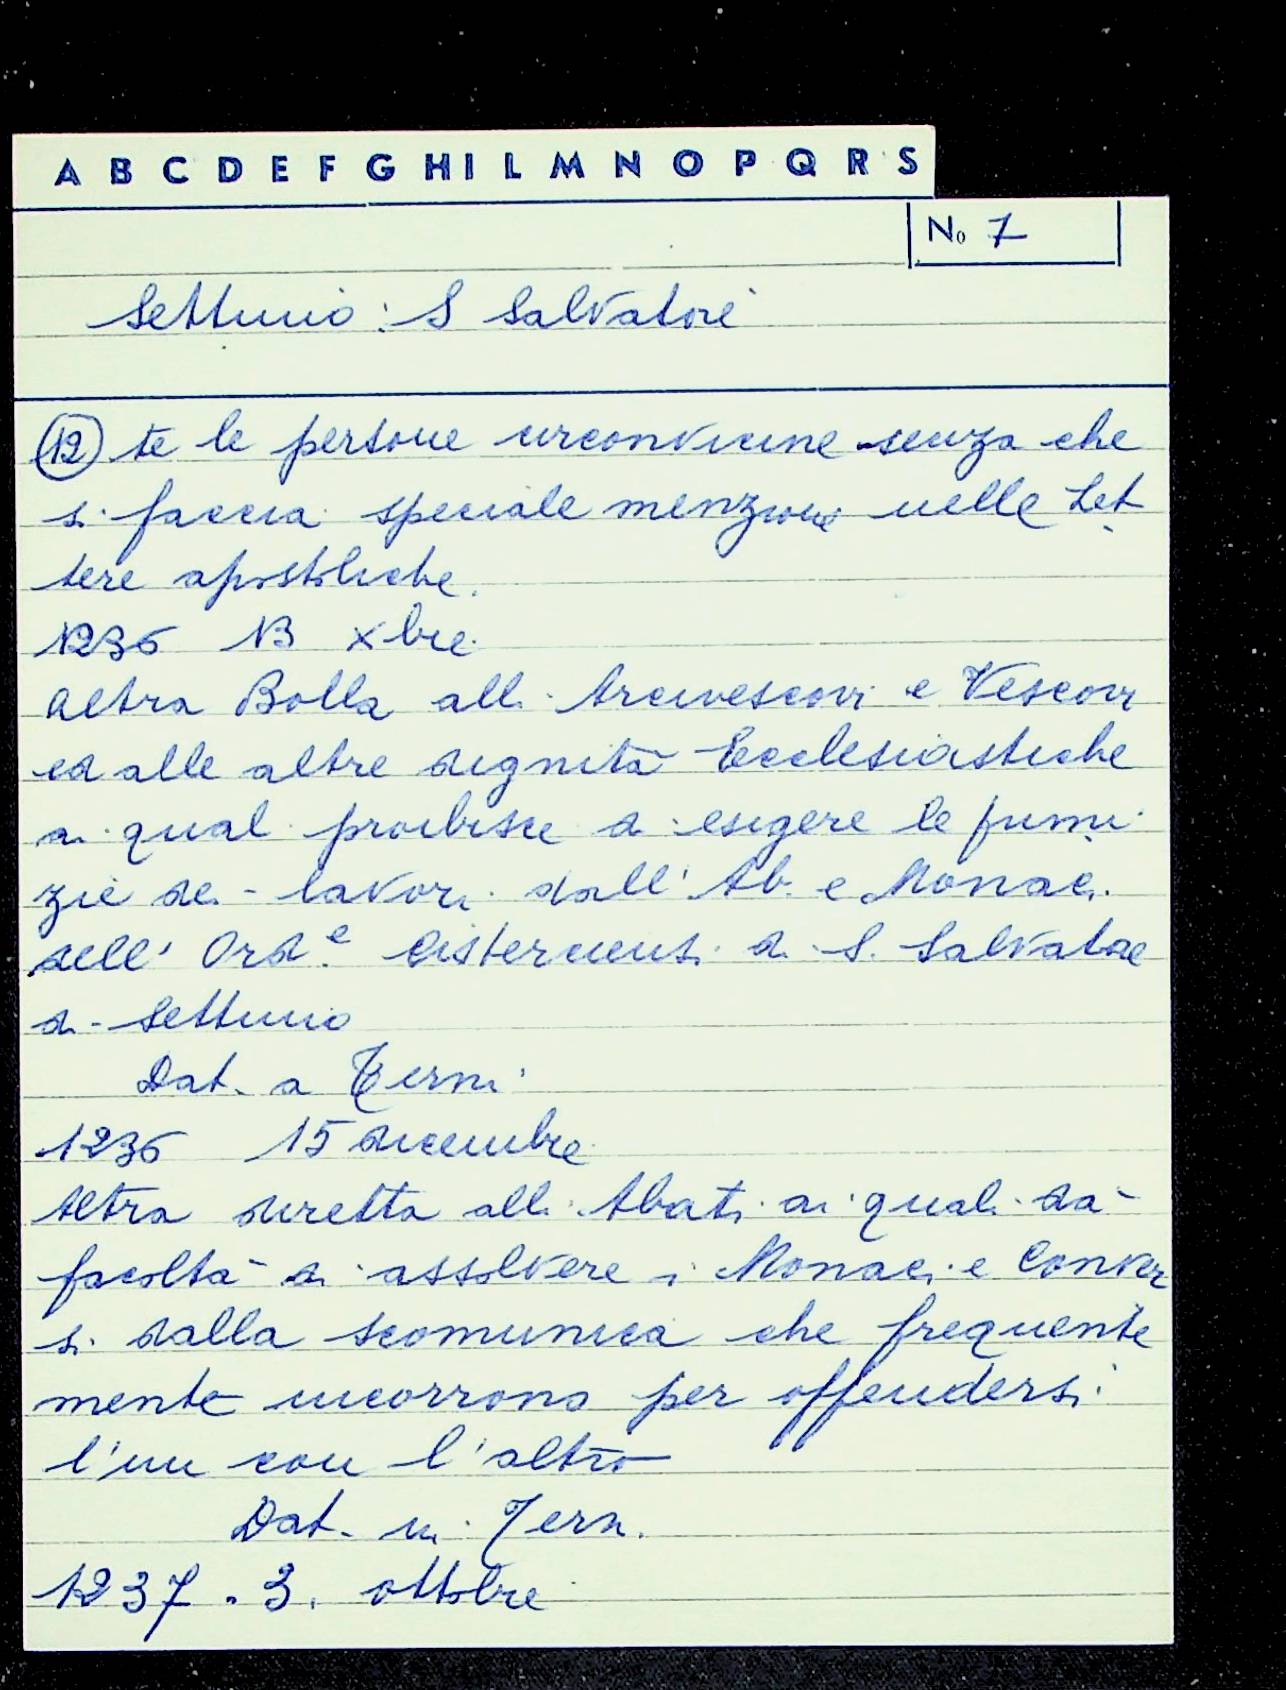 A B C D E F G H I L M N O P Q R S
No 7
Settimo: S Salvatore
(12) te le persone circonvicine senza che
si faccia speciale menzione nelle Let
tere apostoliche.
1236 13 Xbre
Altra Bolla alli Arcivescovi e Vescovi
ed alle altre dignità Ecclesiastiche
ai quali proibisce di esigere le
zie dei lavori dall' Ab. e Monaci
dell' Ord.e Cistercensi di S. Salvatore
di Settimo
Dat. a Terni
1236 15 dicembre
Altra diretta alli Abati ai quali dà
facoltà di assolvere i Monaci e Conver
si dalla scomunica che frequente
mente incorrono per offendersi
l'un con l'altro
Dat. in Terni
1237. 3. ottobre